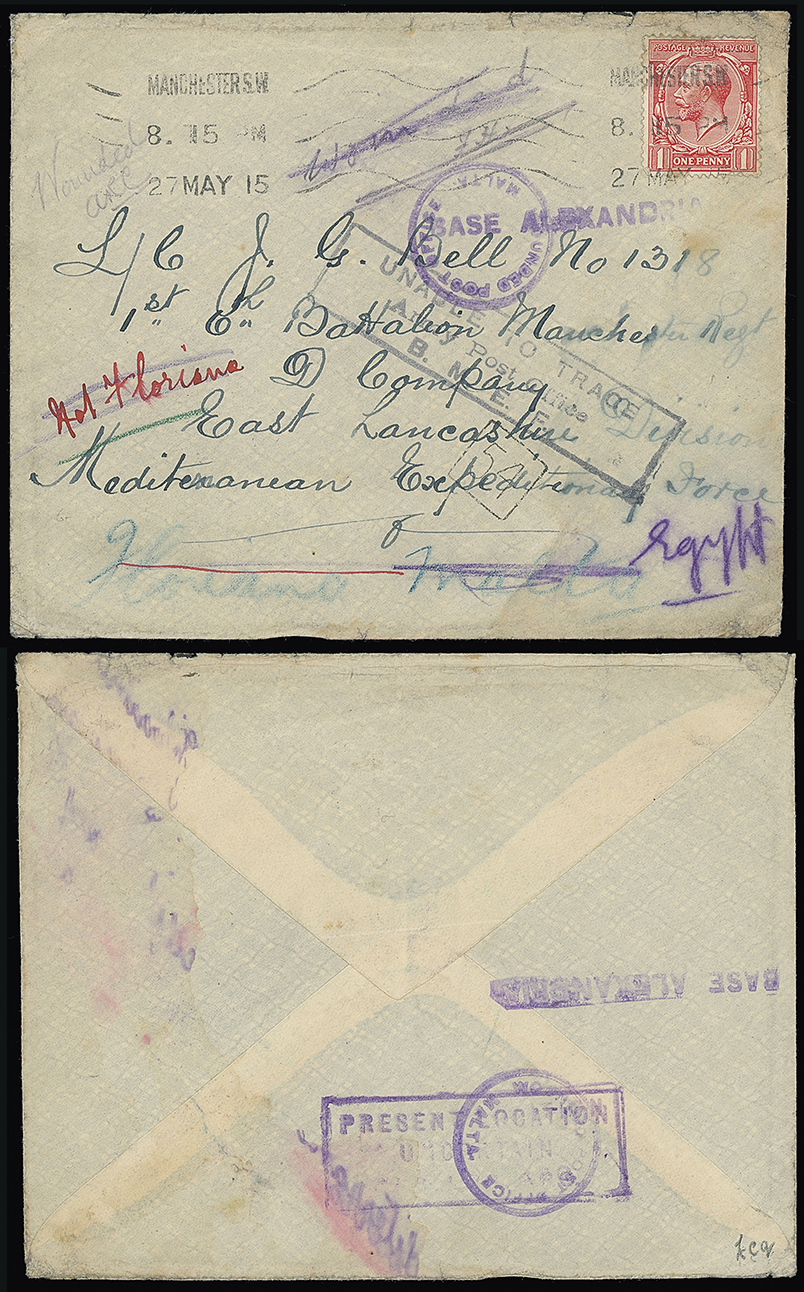 MANCHESTER S.W.
8. 15 PM
27 MAY 15
MANCHESTER S.W.
8. 15 PM
27 MAY 15
POSTAGE REVENUE
1 ONE PENNY 1
Wounded
MALTA.
WOUNDED POST OFFICE
BASE ALEXANDRIA
L/C J. G. Bell No 1318
1st 6th Battalion Manchester Regt
D Company
East Lancashire Division
Mediteranean Expeditionary Force
UNABLE TO TRACE
Army Post Office
B. M. E. F.
Not Floriana
Floriana Malta
Egypt
BASE ALEXANDRIA
PRESENT LOCATION
UNCERTAIN
MALTA.
OFFICE